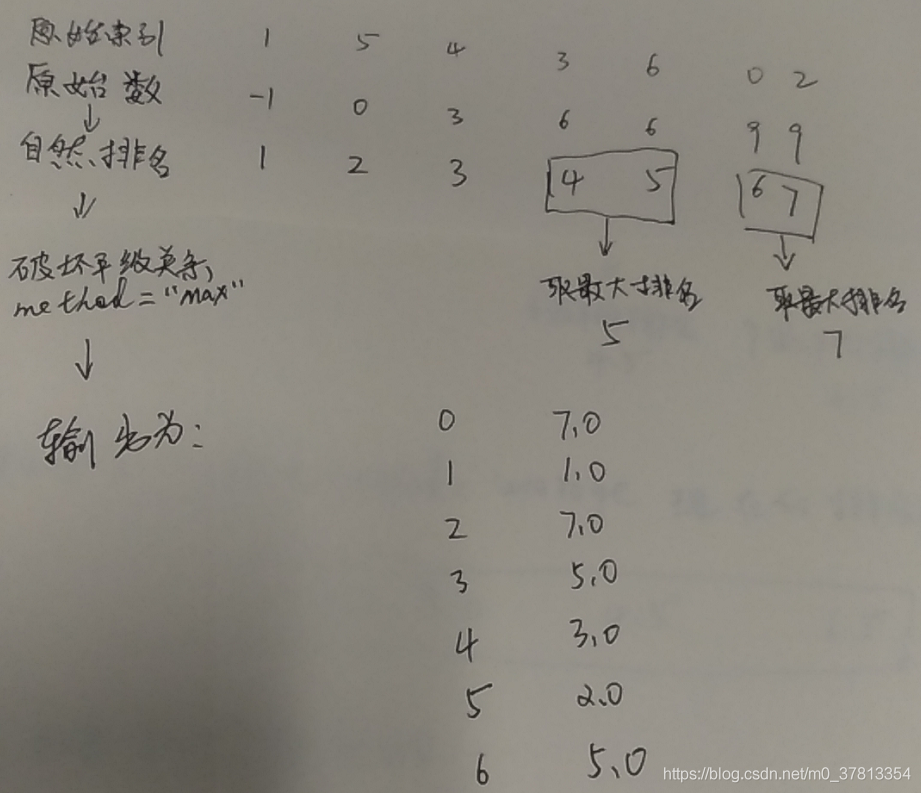 原始索引 1 5 4 3 6 0 2
原始数 -1 0 3 6 6 9 9
↓
自然排名 1 2 3 4 5 6 7
↓
破坏平级关系,
method="max"
取最大排名 取最大排名
5 7
↓
输出为:
0 7.0
1 1.0
2 7.0
3 5.0
4 3.0
5 2.0
6 5.0
https://blog.csdn.net/m0_37813354